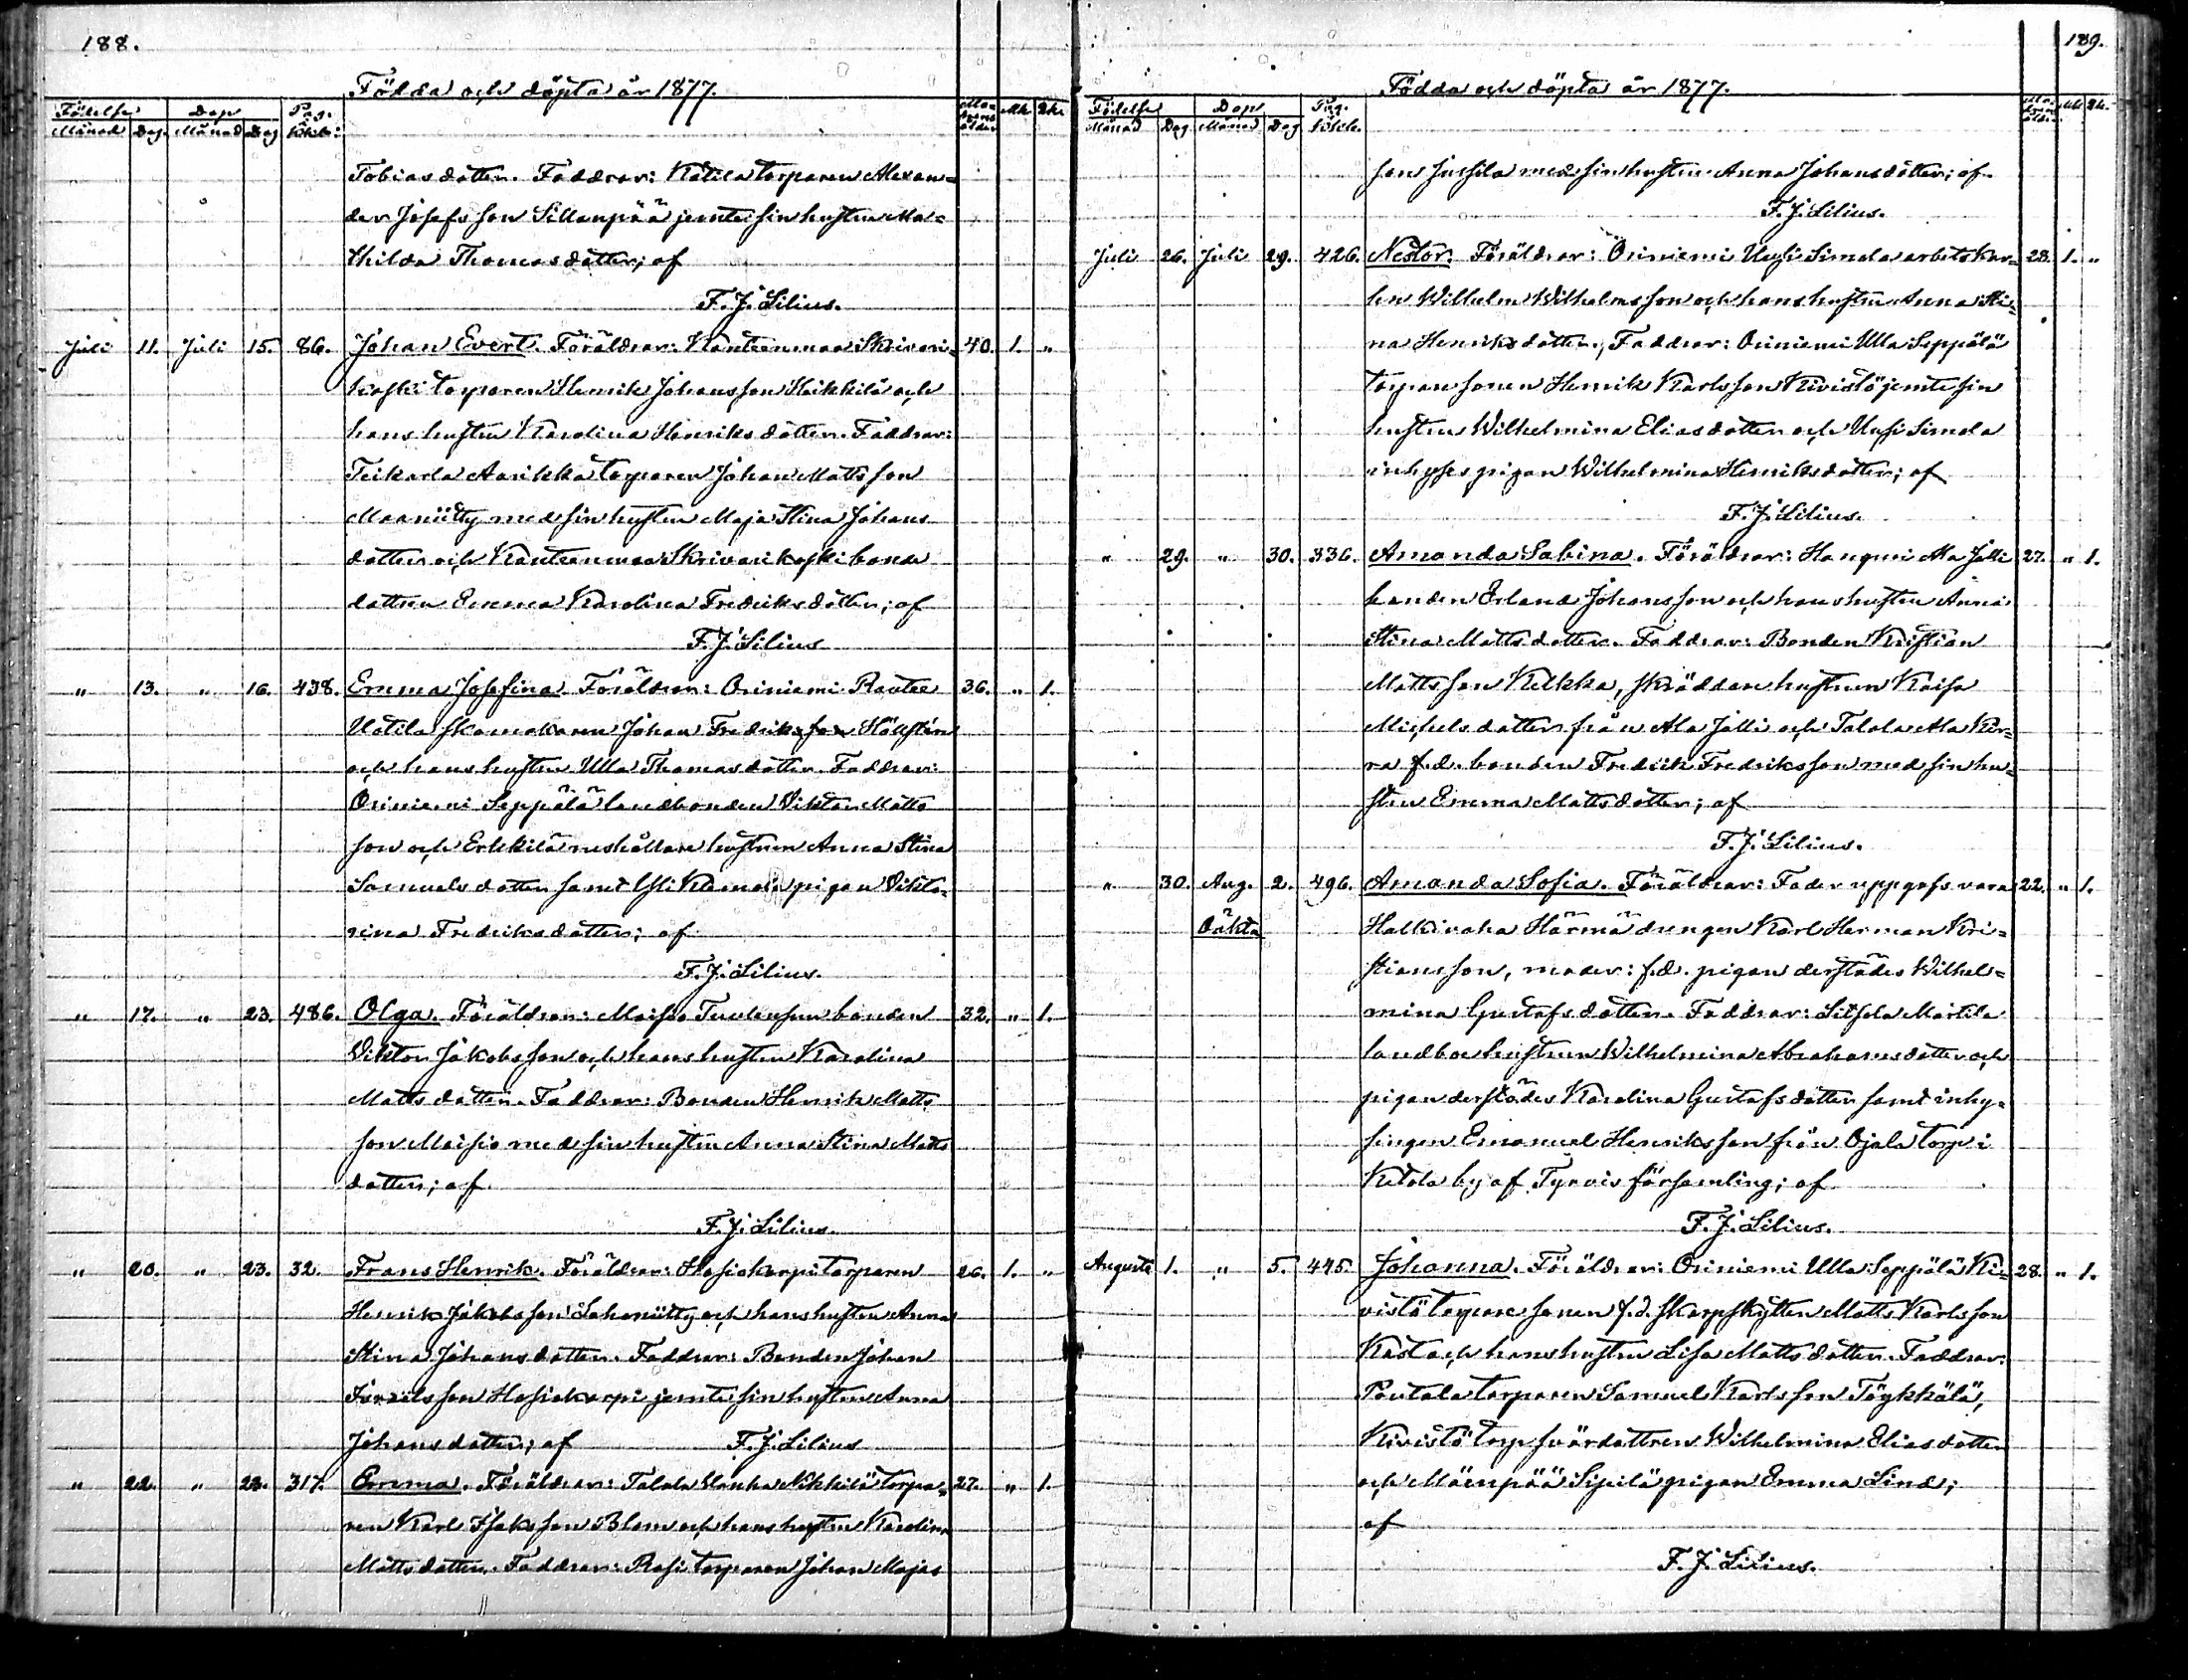 188.
Födda och döpta år 1877.
Födelse Dop Pag. Mo-
Månad Dag. Månad Dag Kkb: derns ålder Mk. Qk.
Tobiasdotter. Faddrar: Kätila torparen Alexan=
der Josefsson Sillanpää jemte sin hustru Ma=
thilda Thomasdotter; af
F. J. Lilius.
Juli 11. Juli 15. 86. Johan Evert. Föräldrar: Kanteenmaa Skrivari= 40. 1. "
koski torparen Henrik Johansson Heikkilä och
hans hustru Karolina Henriksdotter. Faddrar:
Teikarla Aarikka torparen Johan Mattsson
Maaniitty med sin hustru Maja Stina Johans
dotter och Kanteenmaa Skrivarikoski bonde
dottren Emma Karolina Fredriksdotter; af
F. J. Lilius
" 13. " 16. 438. Emma Josefina. Föräldrar: Oriniemi Rautee 36. " 1.
Uotila skomakaren Johan Fredriksson Hällstén
och hans hustru Ulla Thomasdotter. Faddrar:
Oriniemi Seppälä landbonden Viktor Matts
son och Erkkilä rushållare hustrun Anna Stina
Samuelsdotter samt pigan Vikto=
rina Fredriksdotter; af
F. J. Lilius.
" 17. " 23. 486. Olga. Föräldrar: Maisio Tuulensuu bonden 32. " 1.
Viktor Jakobsson och hans hustru Karolina
Mattsdotter. Faddrar: Bonden Henrik Matts
son Maisio med sin hustru Anna Stina Matts
dotter; af
F. J. Lilius.
" 20. " 23. 32. Frans Henrik. Föräldrar: Hosiokorpi torparen 26. 1. "
Henrik Jakobsson Sahaniitty och hans hustru Anna
Stina Johansdotter. Faddrar: Bonden Johan
Israelsson Hosiokorpi jemte sin hustru Anna
Johansdotter; af F. J. Lilius
" 22. " 23. 317. Emma. Föräldrar: Talala Nikkilä torpa= 27. " 1.
ren Karl Isaksson Blom och hans hustru Karolina
Mattsdotter. Faddrar: Rasi torparen Johan Majas
189.
Födda och döpta år 1877.
Födelse Dop Pag.
Månad Dag Månad Dag Kkb. Mk. Qk.
son Jussila med sin hustru Anna Johansdotter; af
F. J. Lilius.
Juli 26. Juli 29. 426. Nestor. Föräldrar: Oriniemi Uusi Simola arbetskar= 28. 1. "
len Wilhelm Wilhelmsson och hans hustru Anna Sti=
na Henriksdotter. Faddrar: Oriniemi Ulla Seppälä
torpare sonen Henrik Karlsson Kivistö jemte sin
hustru Wilhelmina Eliasdotter och Uusi Simola
inhyses pigan Wilhelmina Henriksdotter; af
F. J. Lilius.
" 29. " 30. 336. Amanda Sabina. Föräldrar: Hanguni Ala Jalli 27. " 1.
bonden Erland Johansson och hans hustru Anna
Stina Mattsdotter. Faddrar: Bonden Kristian
Mattsson Kelkka, skräddare hustrun Kaisa
Michelsdotter från Ala Jalli och Talala Ala Kier=
ra f.d. bonden Fredrik Fredriksson med sin hu=
stru Emma Mattsdotter; af
F. J. Lilius.
" 30. Aug. 2. 496. Amanda Sofia. Föräldrar: Fader uppgafs vara 22. " 1.
Oäkta Halkivaha Härmä drengen Karl Herman Kri=
stiansson, moder: f.d. pigan derstädes Wilhel=
mina Gustafsdotter. Faddrar: Martila
landboe hustrun Wilhelmina Abrahamsdotter och
pigan derstädes Karolina Gustafsdotter samt inhy=
singen Emanuel Henriksson från Ojala torp i
Ketola by af Tyrvis församling; af
F. J. Lilius.
Augusti 1. " 5. 445. Johanna. Föräldrar: Oriniemi Ulla Seppälä Ki= 28. " 1.
vistö torpare sonen f.d. skarpskytten Matts Karlsson
Kast och hans hustru Lisa Mattsdotter. Faddrar:
Poutala torparen Samuel Karlsson Töykkälä,
Kivistö torp svärdottren Wilhelmina Eliasdotter
och Mäenpää Sipilä pigan Emma Lind;
af
F. J. Lilius.